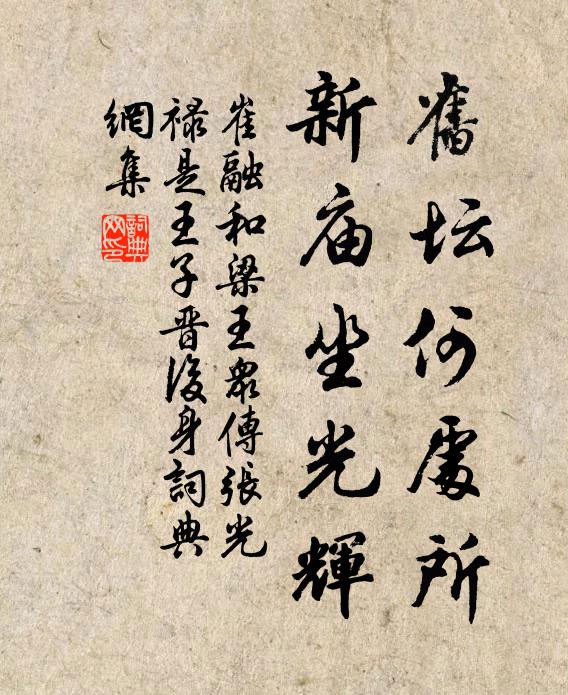 舊坛何處所
新庙坐光輝
崔融和梁王眾傳張光
禄是王子晋後身詞典
網集
詞典网印